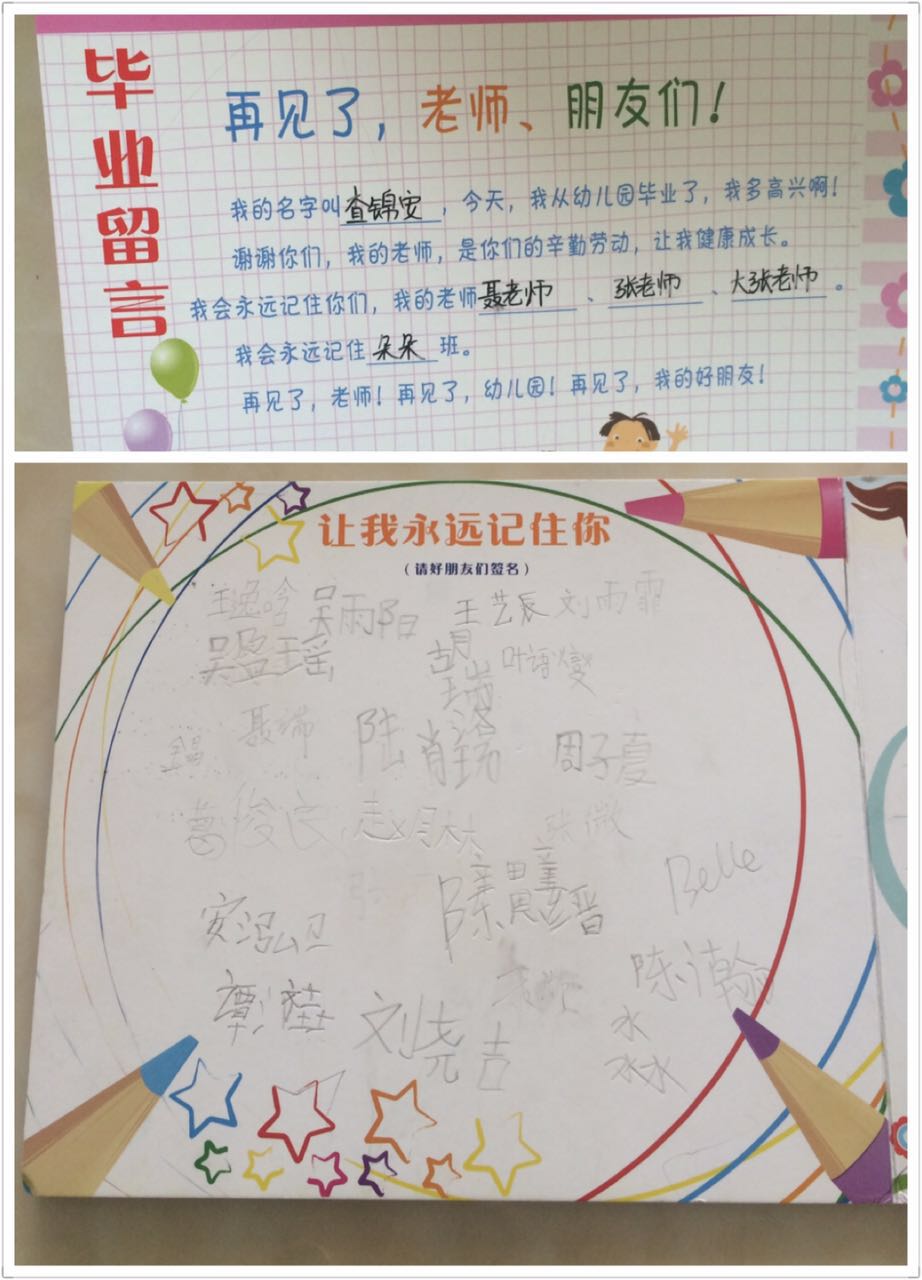 毕业留言
再见了，老师、朋友们！
我的名字叫查锦安，今天，我从幼儿园毕业了，我多高兴啊！
谢谢你们，我的老师，是你们的辛勤劳动，让我健康成长。
我会永远记住你们，我的老师聂老师、张老师、大张老师。
我会永远记住朵朵班。
再见了，老师！再见了，幼儿园！再见了，我的好朋友！
让我永远记住你
（请好朋友们签名）
王逸晗 吴雨阳 王艺辰 刘雨霏
吴盈瑶 叶语燮
聂瑞 陆肖 周子夏
葛俊良 张微
Belle
安泓
陈 瀚
刘尧吉
水
水水